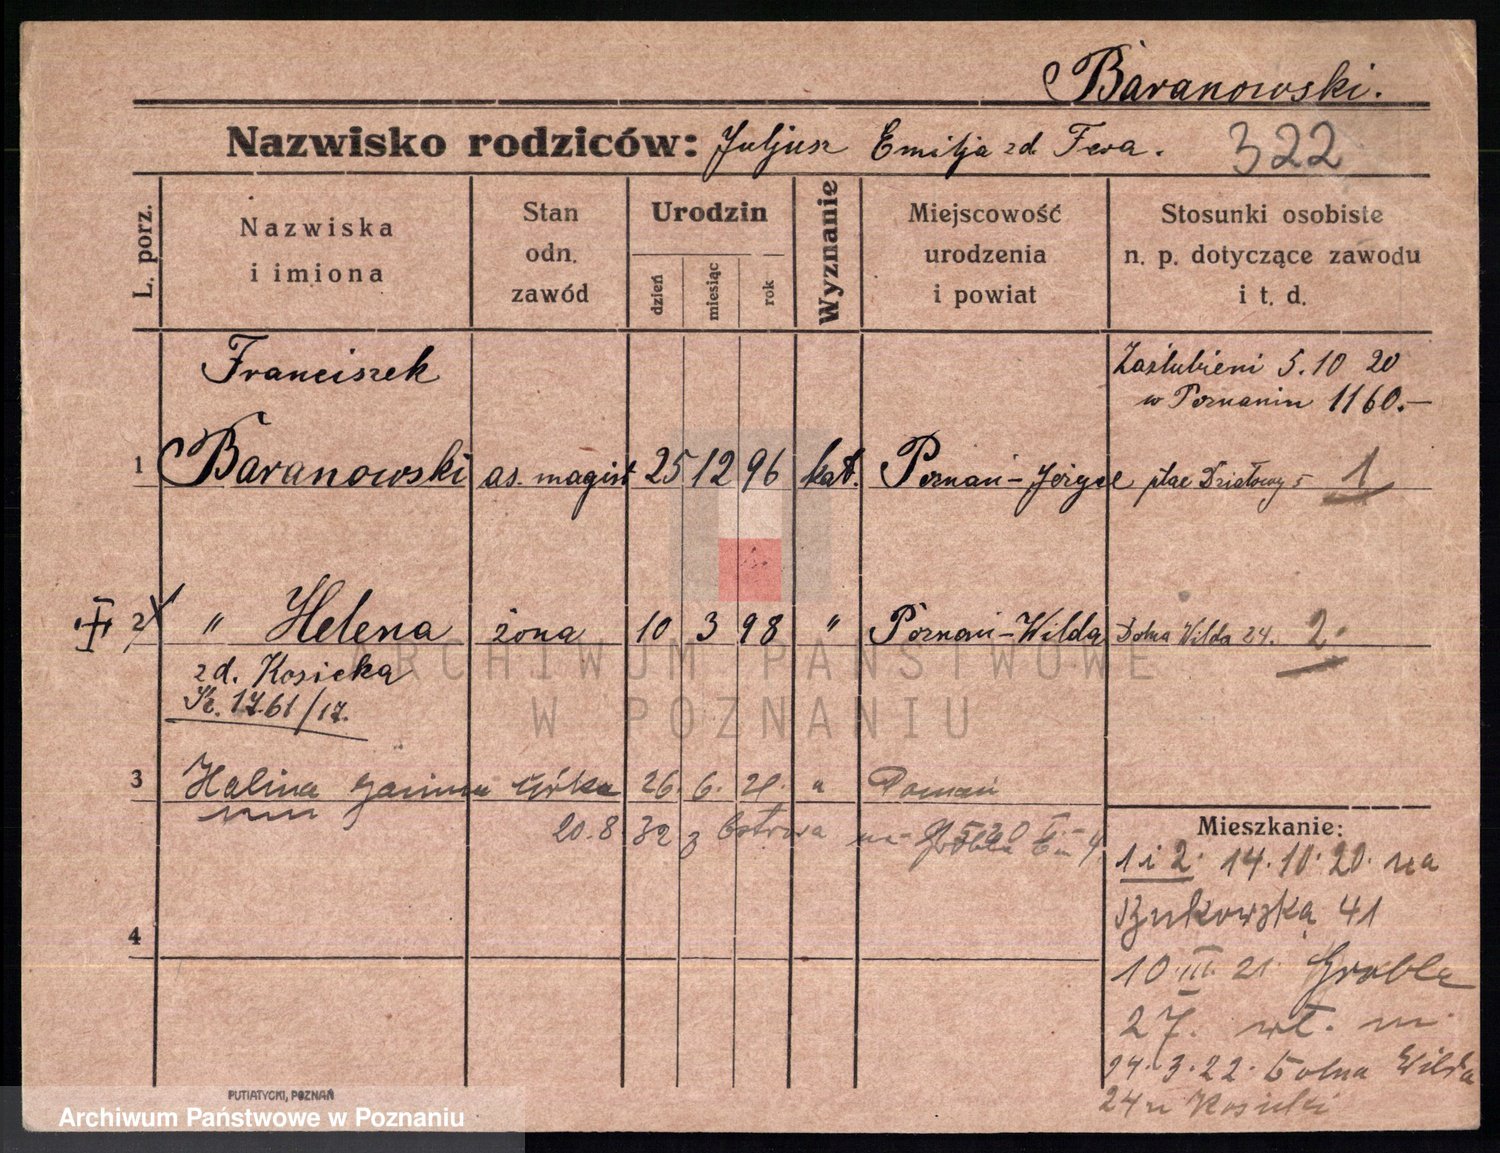 Baranowski.
Nazwisko rodziców: Juljusz Emilja zd Fera. 322
L. porz.
Nazwiska
i imiona
Stan
odn.
zawód
Urodzin
dzień
miesiąc
rok
Wyznanie
Miejscowość
urodzenia
i powiat
Stosunki osobiste
n. p. dotyczące zawodu
i t. d.
Franciszek
Zaślubieni 5.10 20
w Poznaniu 1160.—
1 Baranowski as. magist 25 12 96 kat. Poznań - Jeżyce plac Działowy 5 1
2 " Helena żona 10 3 98 " Poznań - Wilda Dolna Wilda 24. 2.
zd. Kosicka
1761/17.
3 Halina Janina córka 26. 6. 21. " Poznań
20.8 32 z Ostrowa na
4
Mieszkanie:
1 i 2. 14.10.20. na
Bukowską 41
10.III.21. Grobla
27. wł. m.
24.3.22. Dolna Wilda
24 u Kosicki
PUTIATYCKI, POZNAŃ
ARCHIWUM PAŃSTWOWE
W POZNANIU
Archiwum Państwowe w Poznaniu